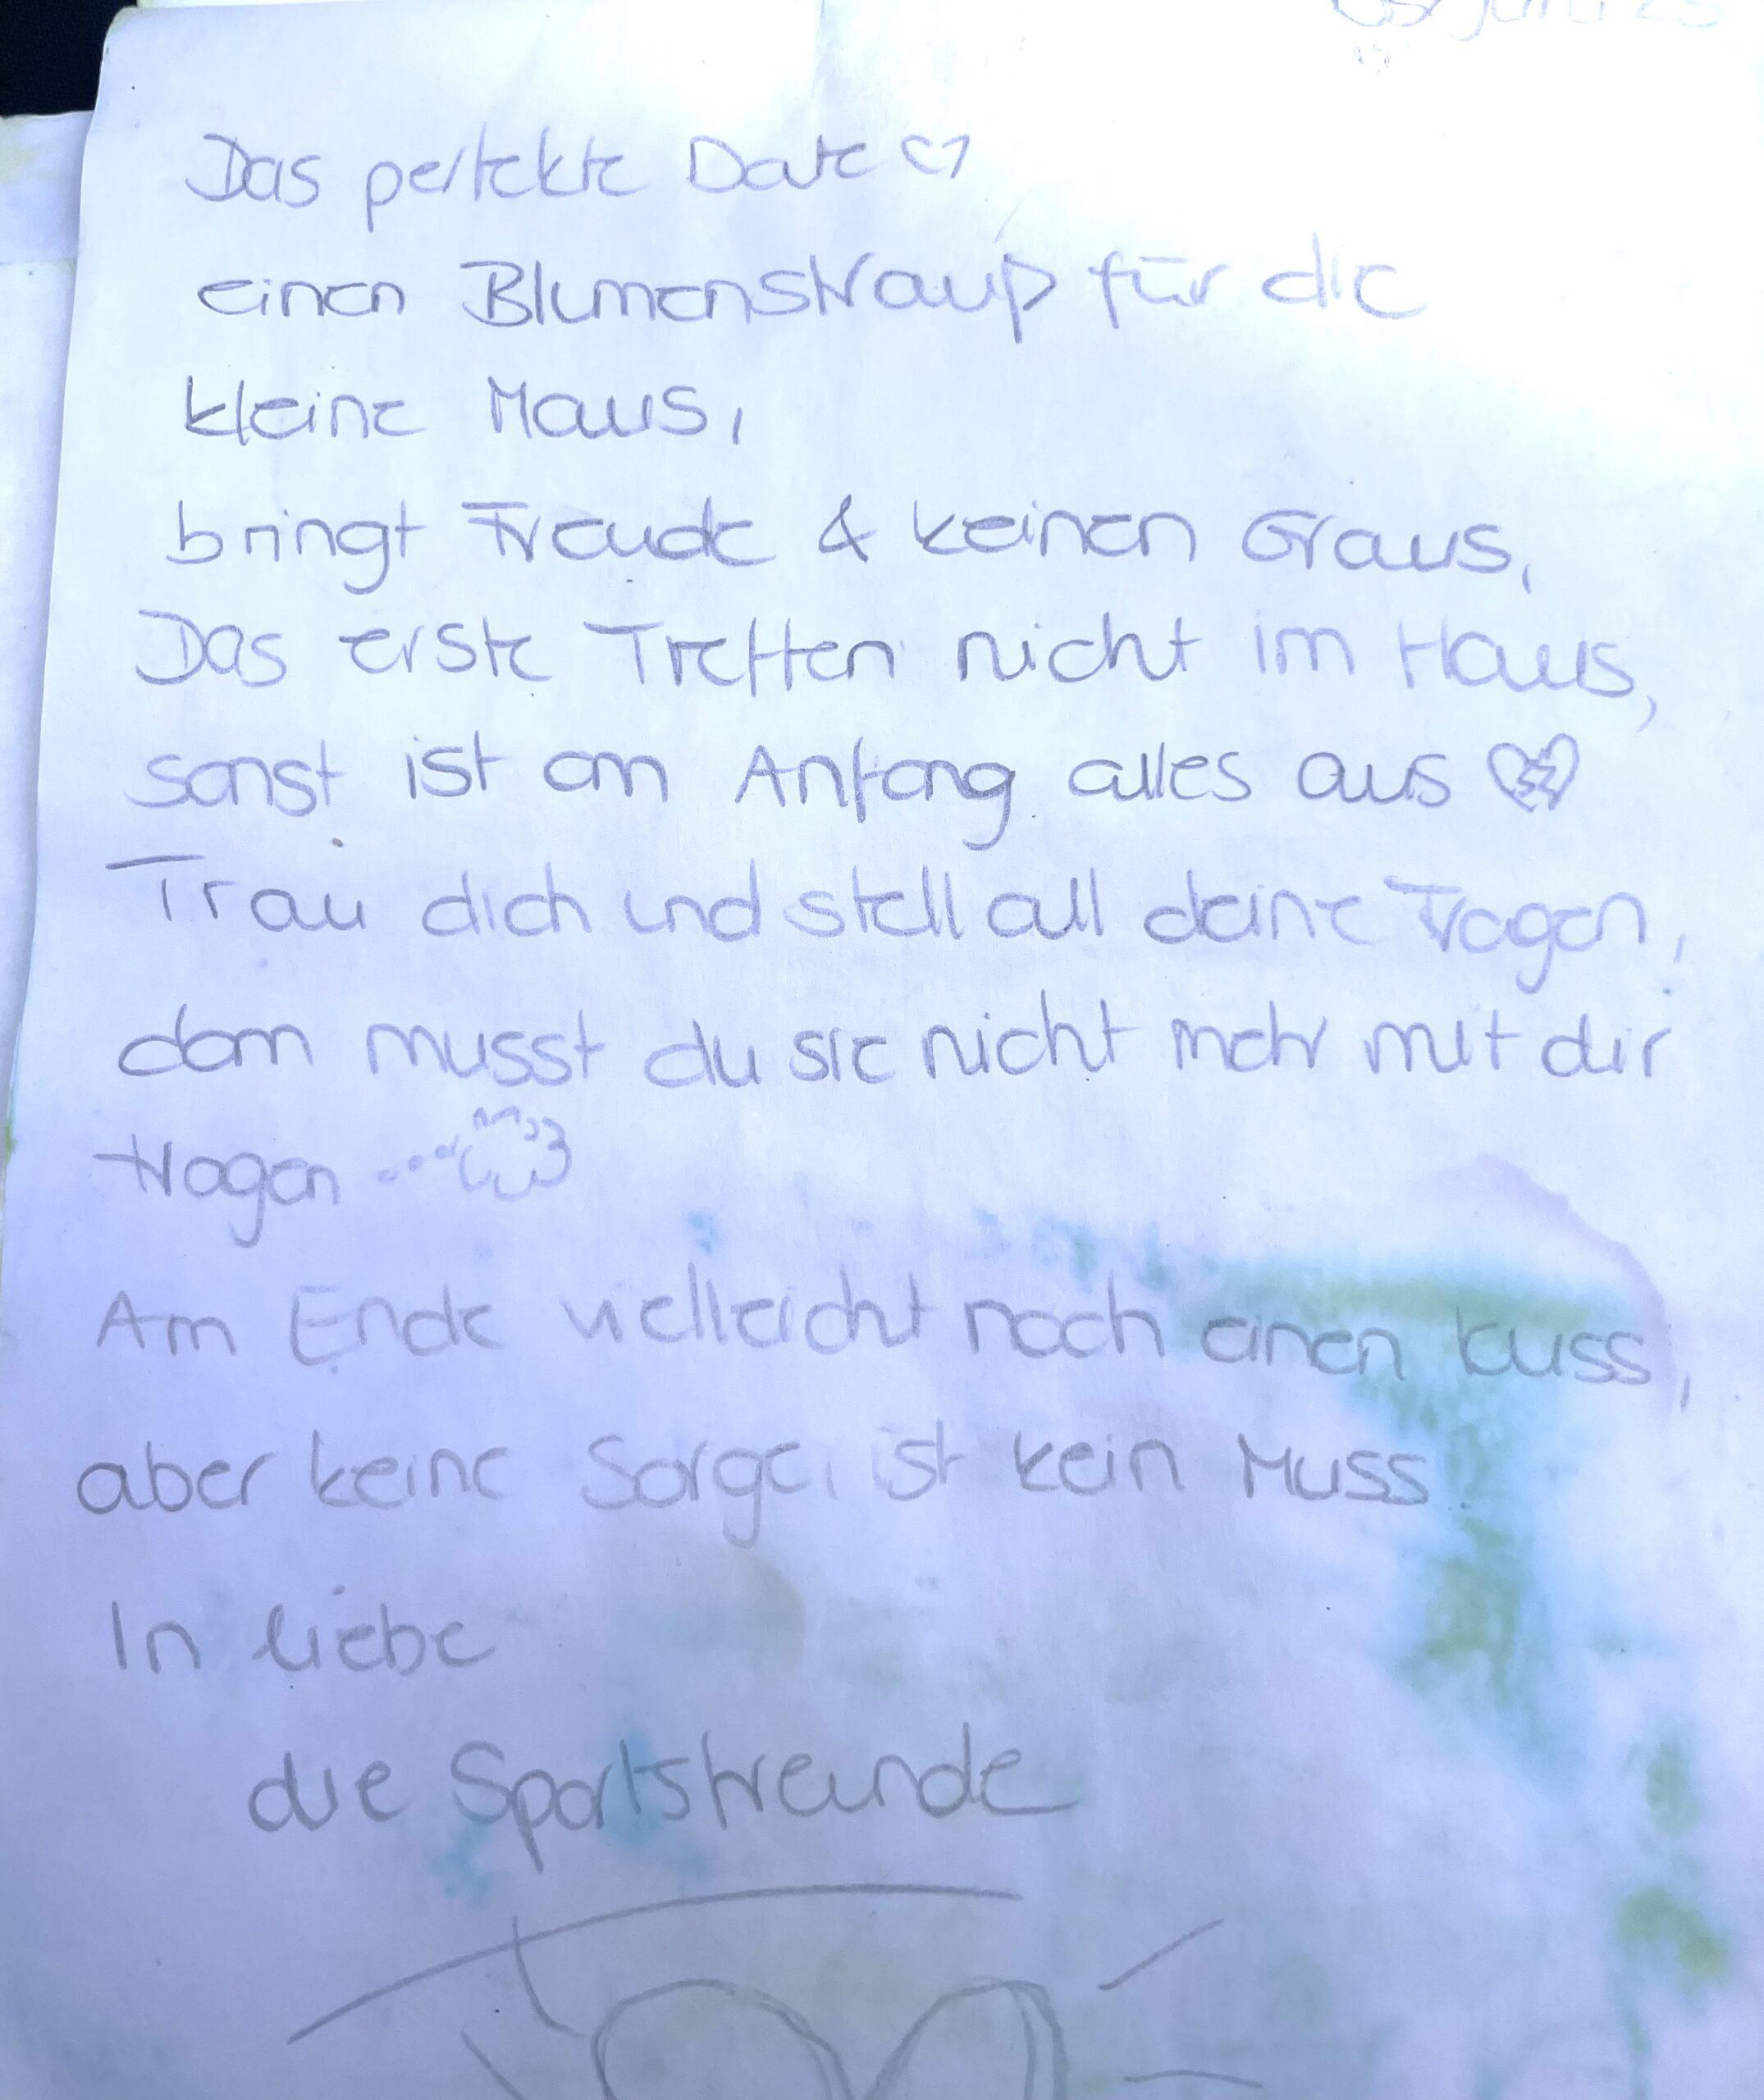 Das perfekte Date ♡
einen Blumenstrauß für die
kleine Maus,
bringt Freude & keinen Graus,
Das erste Treffen nicht im Haus,
sonst ist am Anfang alles aus 💔
Trau dich und stell all deine Fragen,
dann musst du sie nicht mehr mit dir
tragen ...
Am Ende vielleicht noch einen kuss,
aber keine Sorge, ist kein Muss.
In liebe
die Sportsfreunde